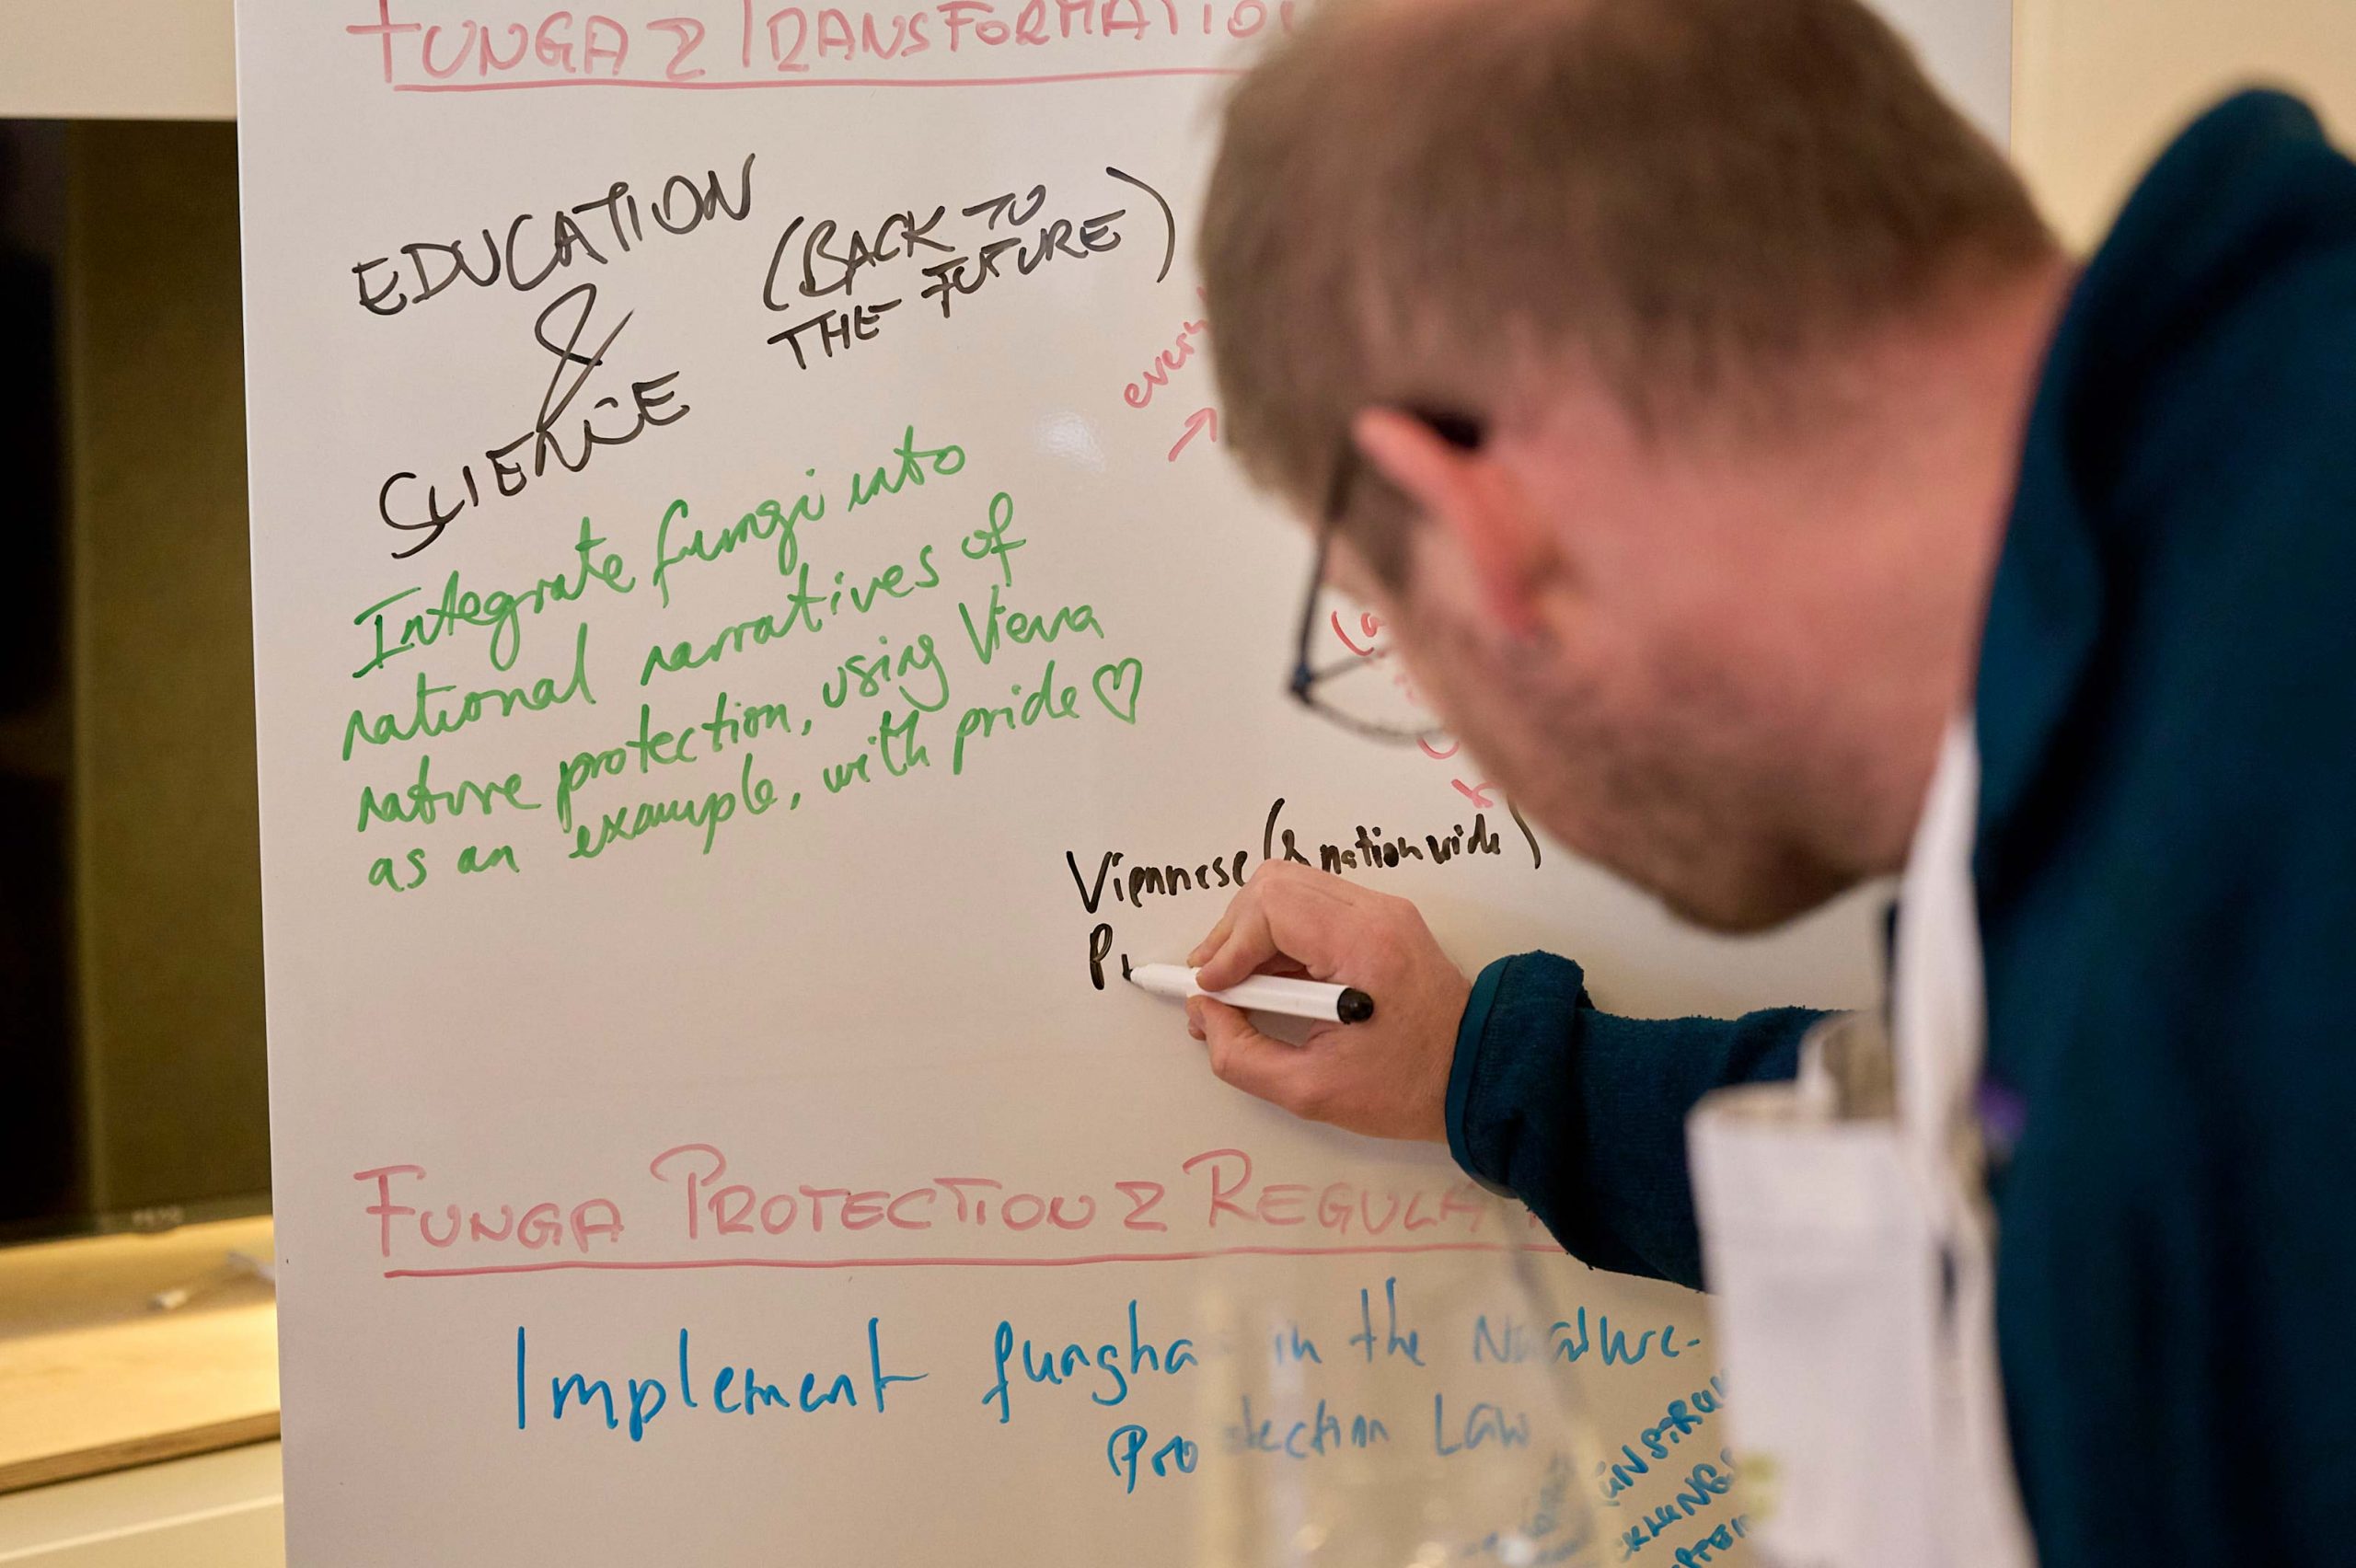 FUNGA & TRANSFORMATION
EDUCATION
&
SCIENCE
(BACK TO
THE FUTURE)
Integrate fungi into
national narratives of
nature protection, using Viena
as an example, with pride ♡
Viennese (& nationwide)
FUNGA PROTECTION & REGULA
Implement fungha in the Nature-
Protection Law